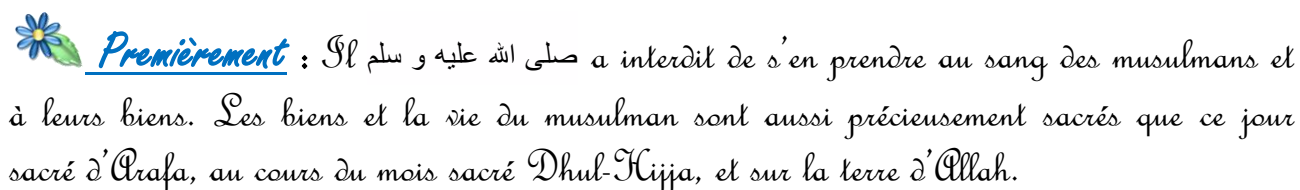 Premièrement : Il صلى الله عليه و سلم a interdit de s'en prendre au sang des musulmans et
à leurs biens. Les biens et la vie du musulman sont aussi précieusement sacrés que ce jour
sacré d'Arafa, au cours du mois sacré Dhul-Hijja, et sur la terre d'Allah.